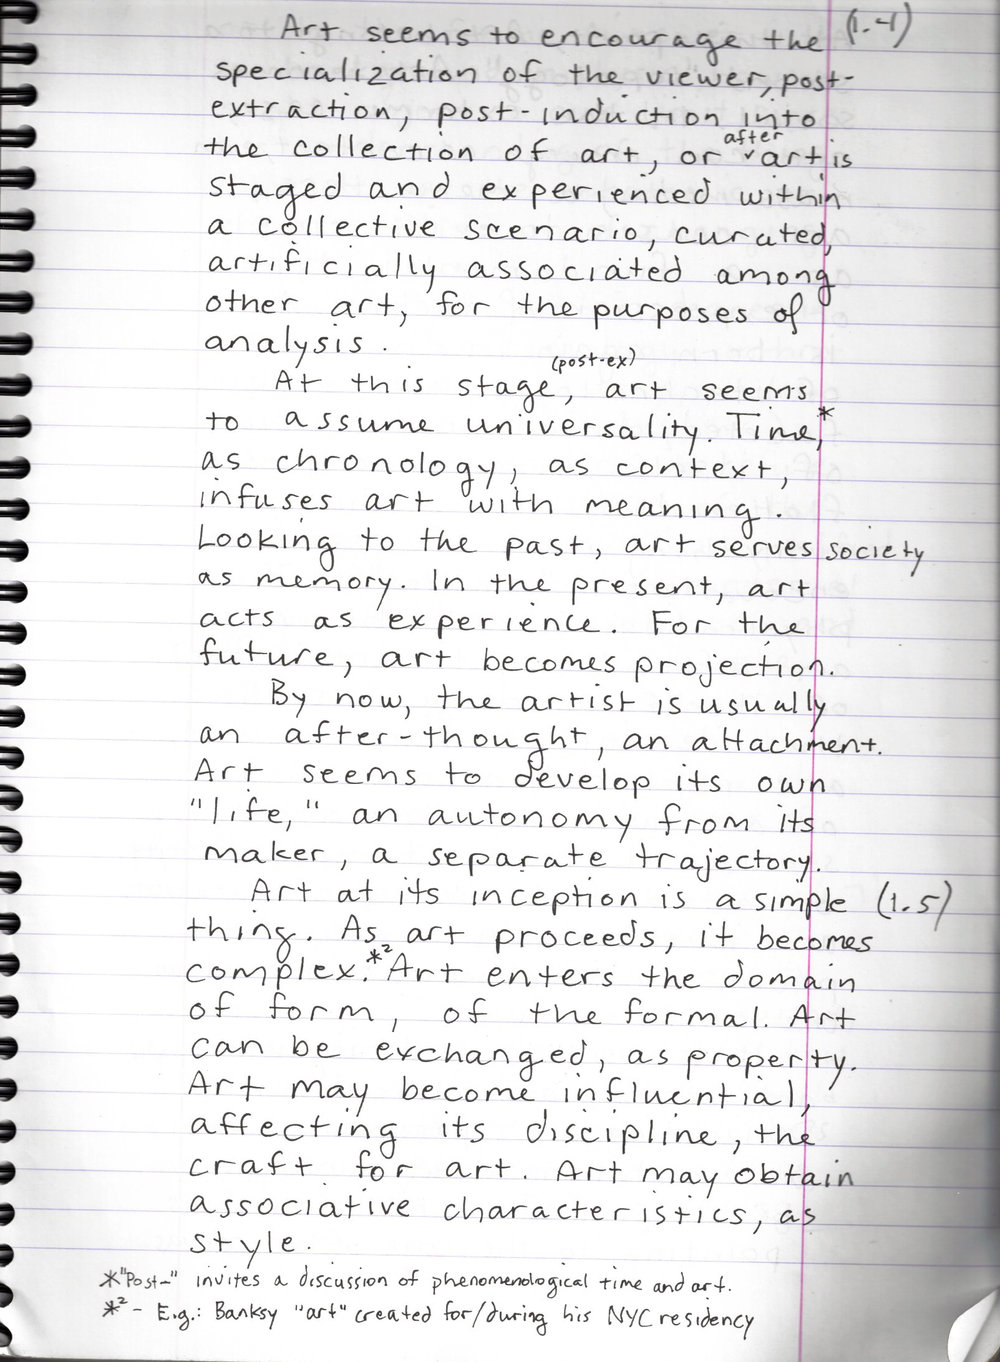 Art seems to encourage the (1.4)
specialization of the viewer, post-
extraction, post-induction into
the collection of art, or ˅after art is
staged and experienced within
a collective scenario, curated,
artificially associated among
other art, for the purposes of
analysis.
At this stage, (post-ex) art seems
to assume universality. Time,*
as chronology, as context,
infuses art with meaning.
Looking to the past, art serves society
as memory. In the present, art
acts as experience. For the
future, art becomes projection.
By now, the artist is usually
an after-thought, an attachment.
Art seems to develop its own
"life," an autonomy from its
maker, a separate trajectory.
Art at its inception is a simple (1.5)
thing. As art proceeds, it becomes
complex.*² Art enters the domain
of form, of the formal. Art
can be exchanged, as property.
Art may become influential,
affecting its discipline, the
craft for art. Art may obtain
associative characteristics, as
style.
*"Post-" invites a discussion of phenomenological time and art.
*² - E.g.: Banksy "art" created for/during his NYC residency